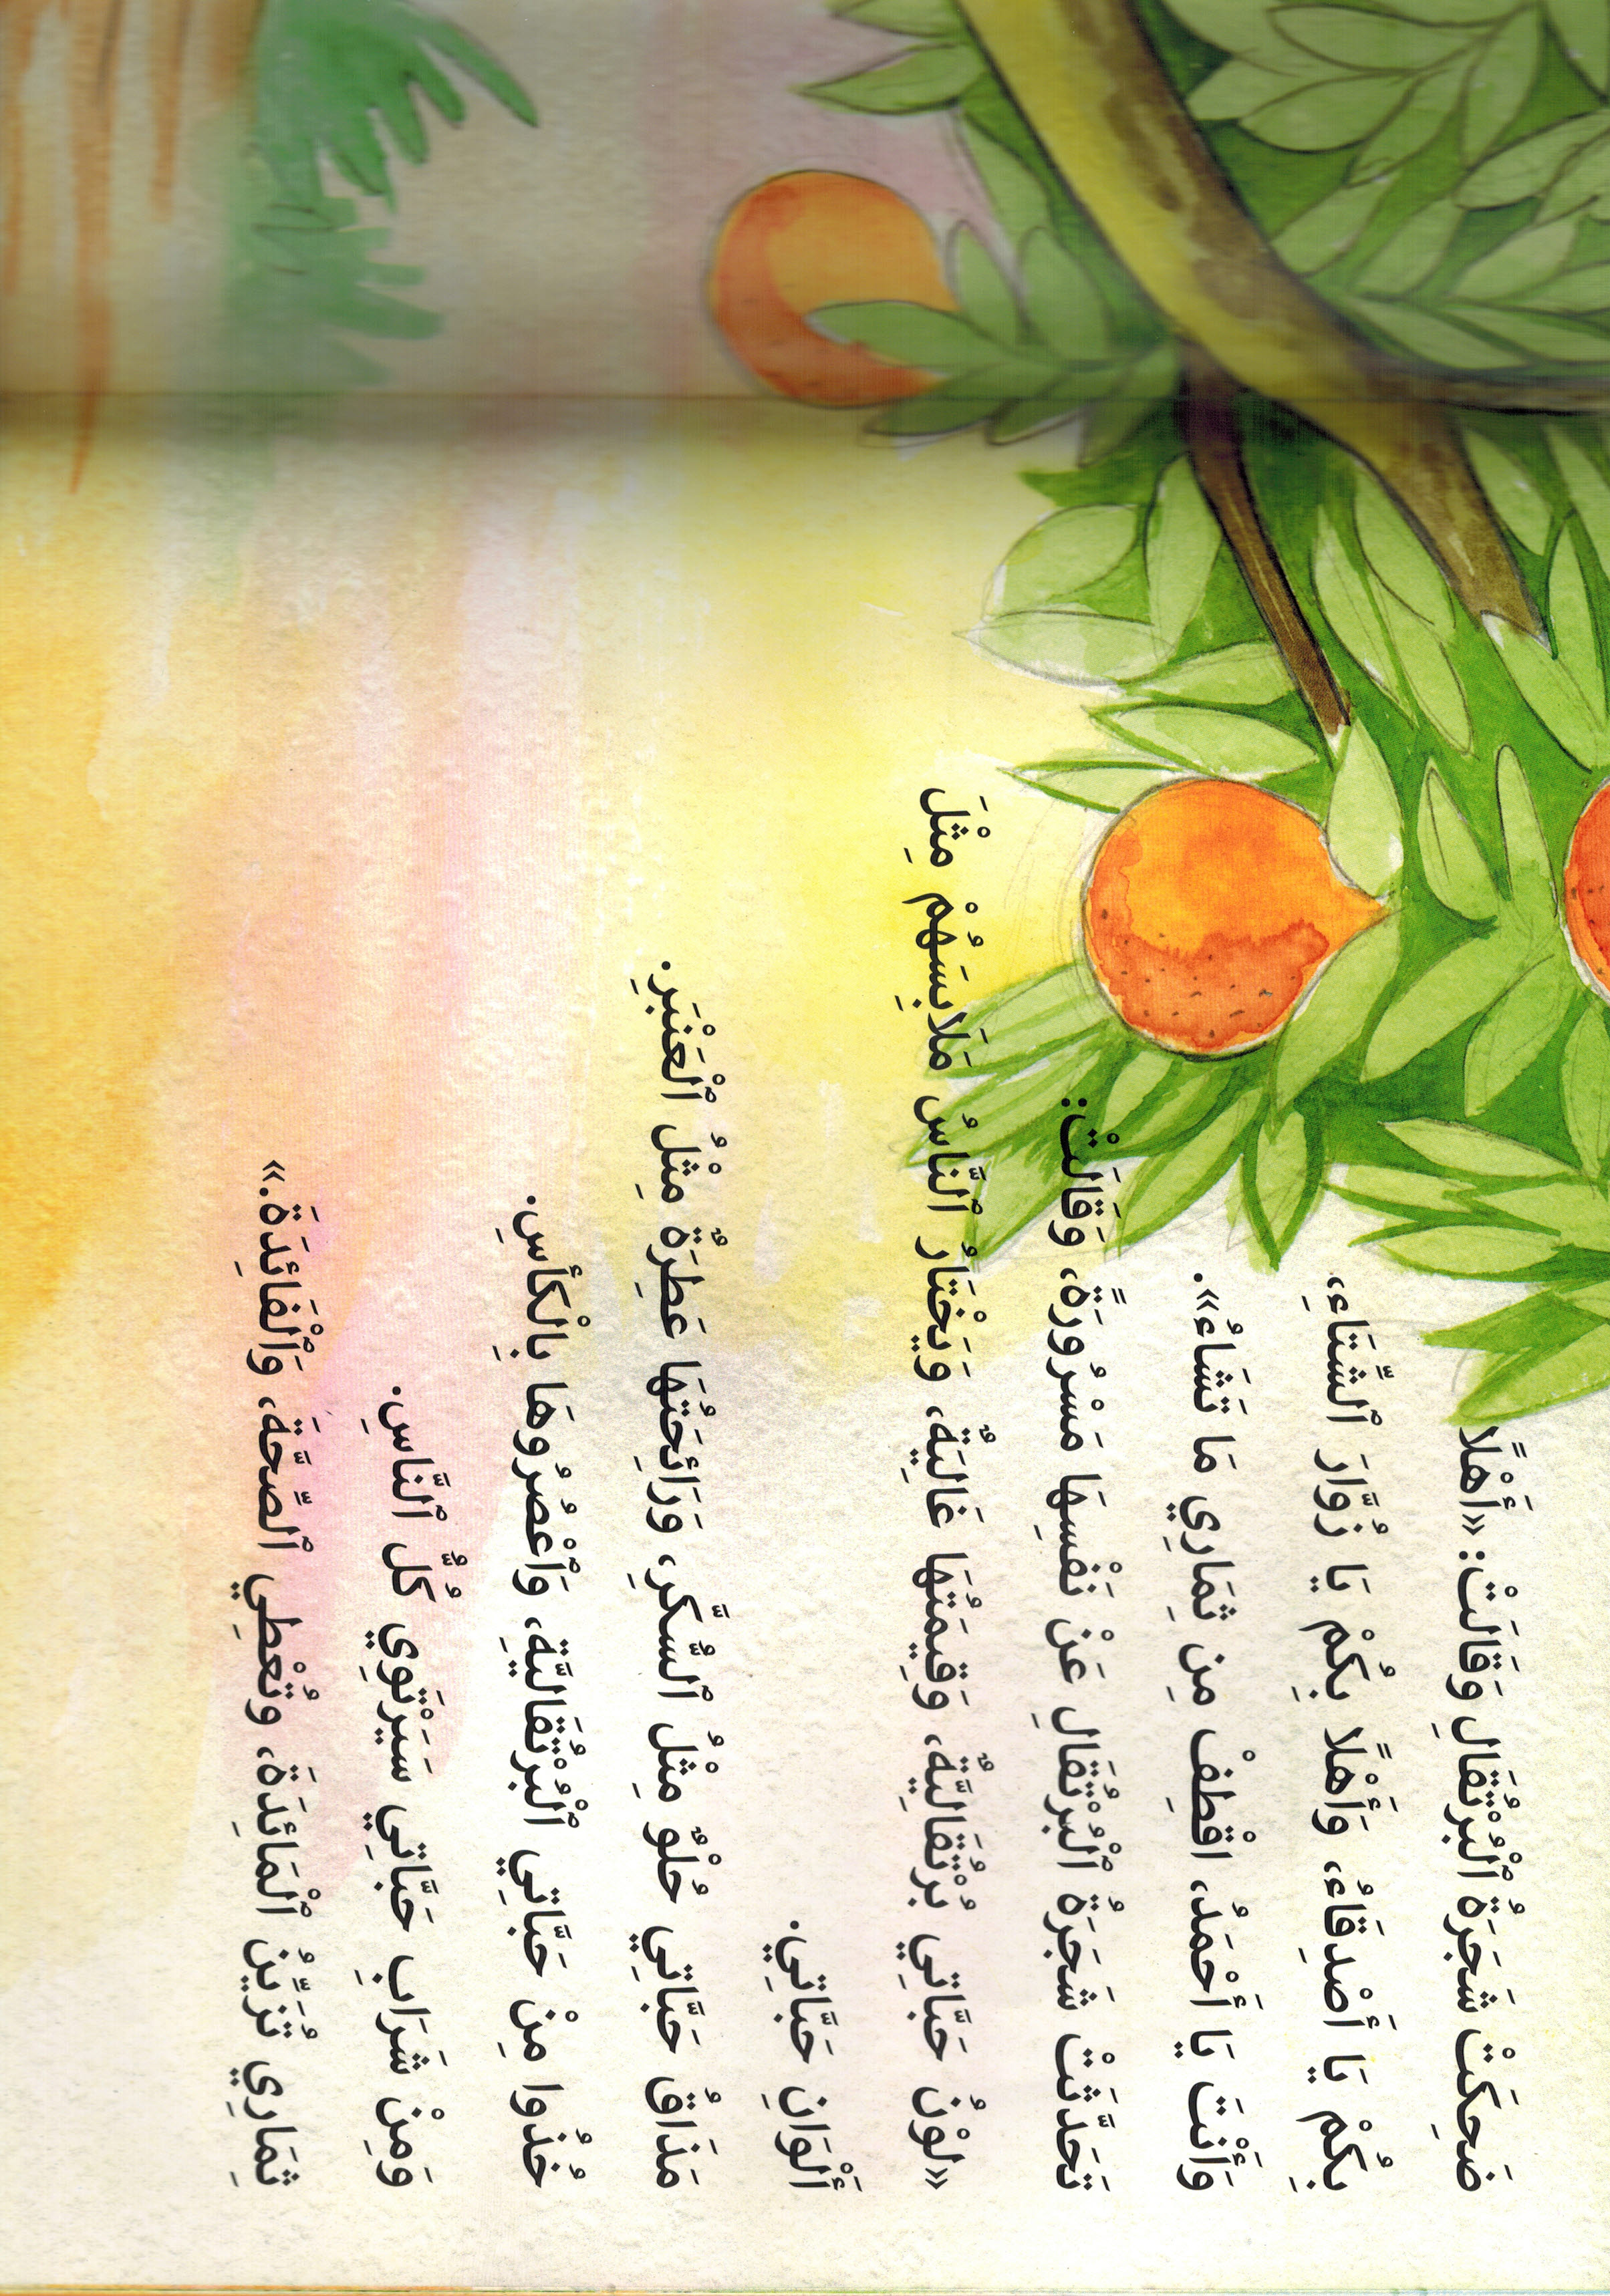 ضَحِكَتْ شَجَرَةُ ٱلْبُرْتُقَالِ وَقَالَتْ: «أَهْلًا
بِكُمْ يَا أَصْدِقَاءُ، وَأَهْلًا بِكُمْ يَا زُوَّارَ ٱلشِّتَاءِ،
وَأَنْتَ يَا أَحْمَدُ، اقْطِفْ مِن ثِمَارِي مَا تَشَاءُ».
تَحَدَّثَتْ شَجَرَةُ ٱلْبُرْتُقَالِ عَنْ نَفْسِهَا مَسْرُورَةً، وَقَالَتْ:
«لَوْنُ حَبَّاتِي بُرْتُقَالِيَّةٌ، وَقِيمَتُهَا غَالِيَةٌ، وَيَخْتَارُ ٱلنَّاسُ مَلَابِسَهُمْ مِثْلَ
أَلْوَانِ حَبَّاتِي.
مَذَاقُ حَبَّاتِي حُلْوٌ مِثْلُ ٱلسُّكَّرِ، وَرَائِحَتُهَا عَطِرَةٌ مِثْلُ ٱلْعَنْبَرِ.
خُذُوا مِنْ حَبَّاتِي ٱلْبُرْتُقَالِيَّةِ، وَٱعْصُرُوهَا بِالْكَأْسِ.
وَمِنْ شَرَابِ حَبَّاتِي سَيَرْتَوِي كُلُّ ٱلنَّاسِ.
ثِمَارِي تُزَيِّنُ ٱلْمَائِدَةَ، وَتُعْطِي ٱلصِّحَّةَ، وَٱلْفَائِدَةَ.»